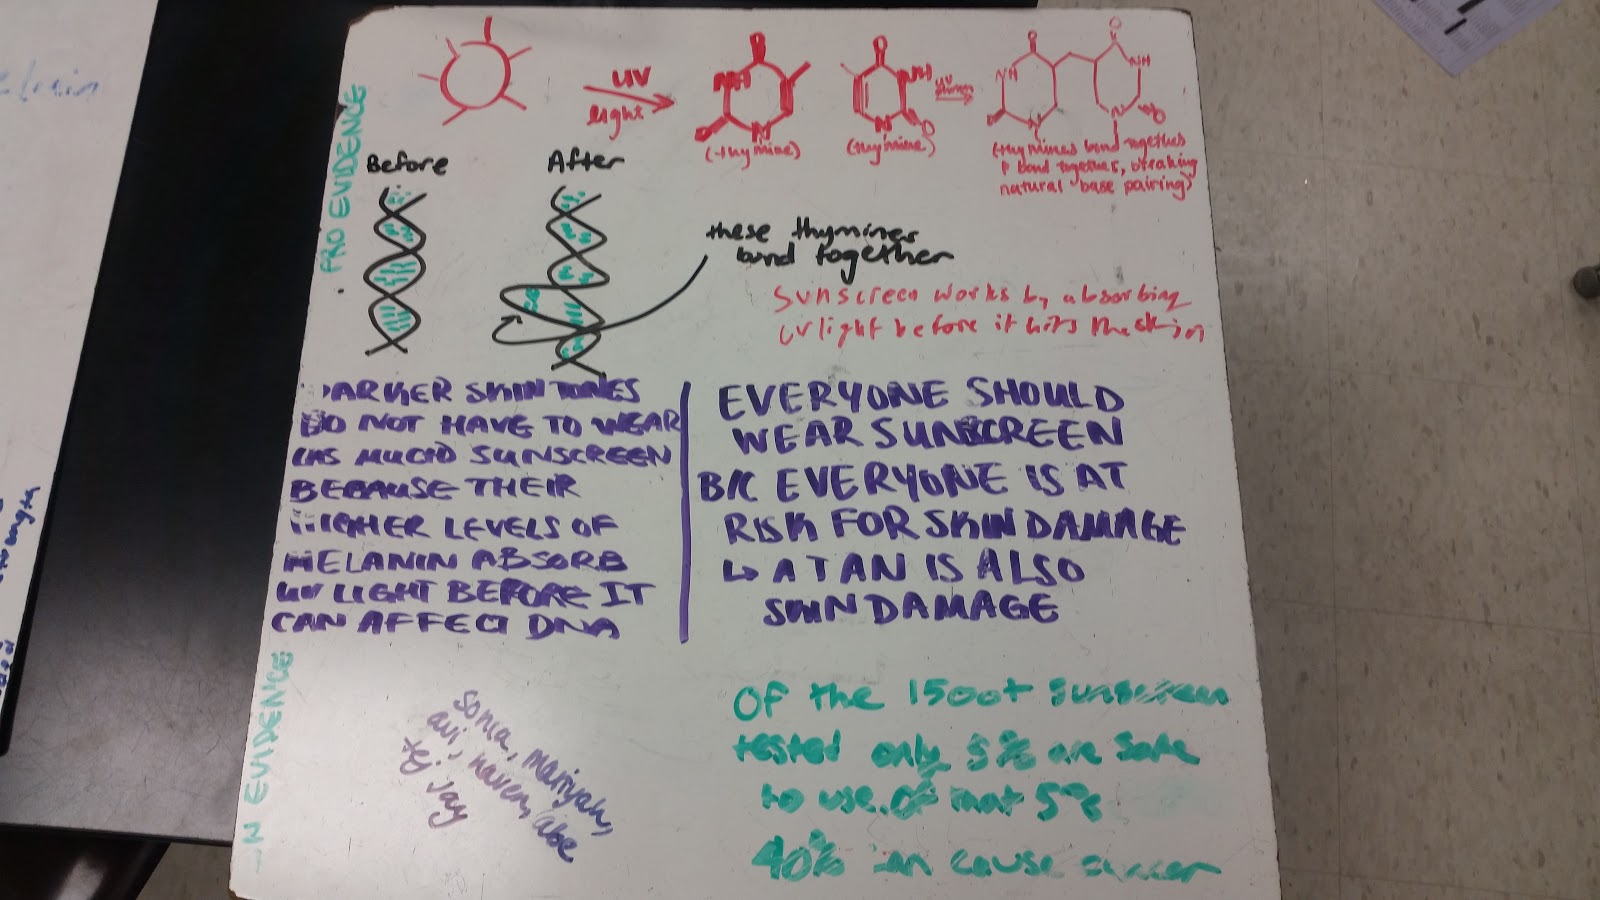 PRO EVIDENCE
UV
light
O
NH
O
N
(thymine)
O
NH
N
O
(thymine)
UV
O
NH
O
N
O
NH
N
O
(thymines bond together
& bond together, breaking
natural base pairing)
Before
After
these thymines
bond together
Sunscreen works by absorbing
UV light before it hits the skin
DARKER SKIN TONES
DO NOT HAVE TO WEAR
AS MUCH SUNSCREEN
BECAUSE THEIR
HIGHER LEVELS OF
MELANIN ABSORB
UV LIGHT BEFORE IT
CAN AFFECT DNA
EVERYONE SHOULD
WEAR SUNSCREEN
B/C EVERYONE IS AT
RISK FOR SKIN DAMAGE
↳ A TAN IS ALSO
SKIN DAMAGE
EVIDENCE
Sonia, mariyah,
avi, haven, abe
tej, Jay
Of the 1500+ sunscreen
tested only 5% are safe
to use. Of that 5%
40% can cause cancer